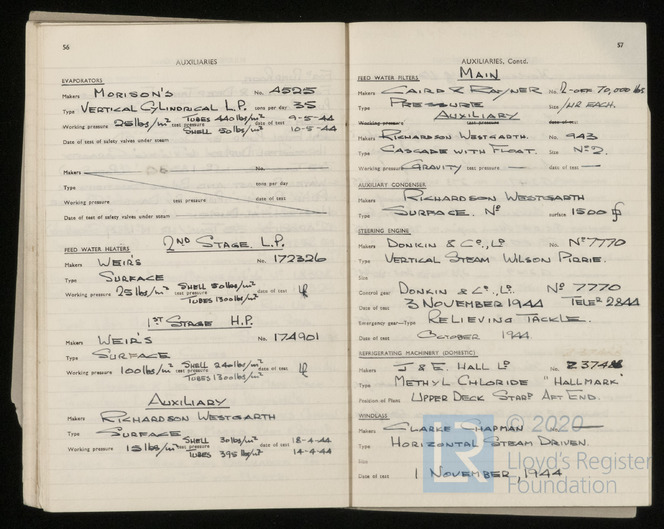 56
AUXILIARIES
EVAPORATORS
Makers MORISON'S No. 4525
Type VERTICAL CYLINDRICAL L.P. tons per day 35
Working pressure 25 lbs/in² test pressure TUBES 440 lbs/in² date of test 9-5-44
SHELL 50 lbs/in² 10-5-44
Date of test of safety valves under steam
Makers No.
Type tons per day
Working pressure test pressure date of test
Date of test of safety valves under steam
FEED WATER HEATERS 2ND STAGE L.P.
Makers WEIR'S No. 172326
Type SURFACE
Working pressure 25 lbs/in² test pressure SHELL 50 lbs/in² date of test
TUBES 1300 lbs/in²
1ST STAGE H.P.
Makers WEIR'S No. 174901
Type SURFACE
Working pressure 100 lbs/in² test pressure SHELL 240 lbs/in² date of test
TUBES 1300 lbs/in²
AUXILIARY
Makers RICHARDSON WESTGARTH
Type SURFACE
Working pressure 15 lbs/in² test pressure SHELL 30 lbs/in² date of test 18-4-44
TUBES 395 lbs/in² 14-4-44
57
AUXILIARIES, Contd.
FEED WATER FILTERS MAIN
Makers CAIRD & RAYNER No. 2-OFF 70,000 lbs
Type PRESSURE Size /HR EACH.
AUXILIARY
Working pressure test pressure date of test
Makers RICHARDSON WESTGARTH. No. 943
Type CASCADE WITH FLOAT. Size No 2.
Working pressure GRAVITY test pressure date of test
AUXILIARY CONDENSER
Makers RICHARDSON WESTGARTH
Type SURFACE. No surface 1500
STEERING ENGINE
Makers DONKIN & Co., Ld No. No 7770
Type VERTICAL STEAM WILSON PIRRIE.
Size
Control gear DONKIN & Co., Ld. No 7770
Date of test 3 NOVEMBER 1944 TELER 2844
Emergency gear—Type RELIEVING TACKLE.
Date of test OCTOBER 1944
REFRIGERATING MACHINERY (DOMESTIC)
Makers J & E. HALL Ld No.
Type METHYL CHLORIDE "HALLMARK"
Position of Plant UPPER DECK STARD AFT END.
WINDLASS
Makers CLARKE CHAPMAN No.
Type HORIZONTAL STEAM DRIVEN.
Size
Date of test 1 NOVEMBER, 1944
LR © 2020
Lloyd's Register
Foundation